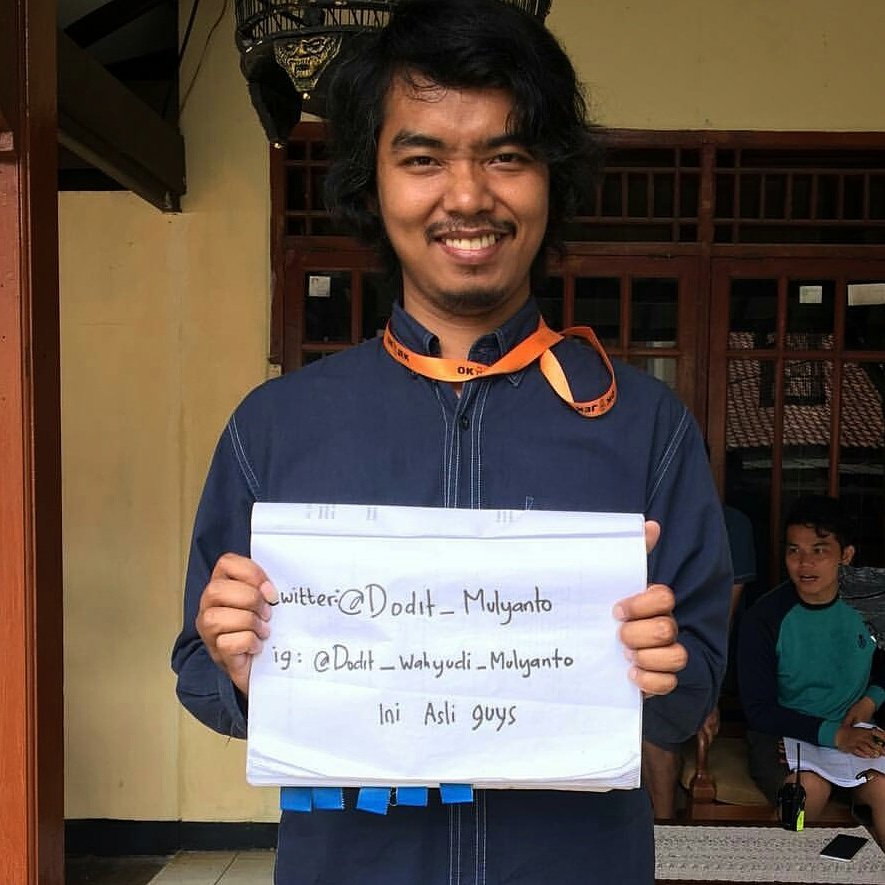 OK
twitter:@Dodit_Mulyanto
ig: @Dodit_Wahyudi_Mulyanto
Ini Asli guys